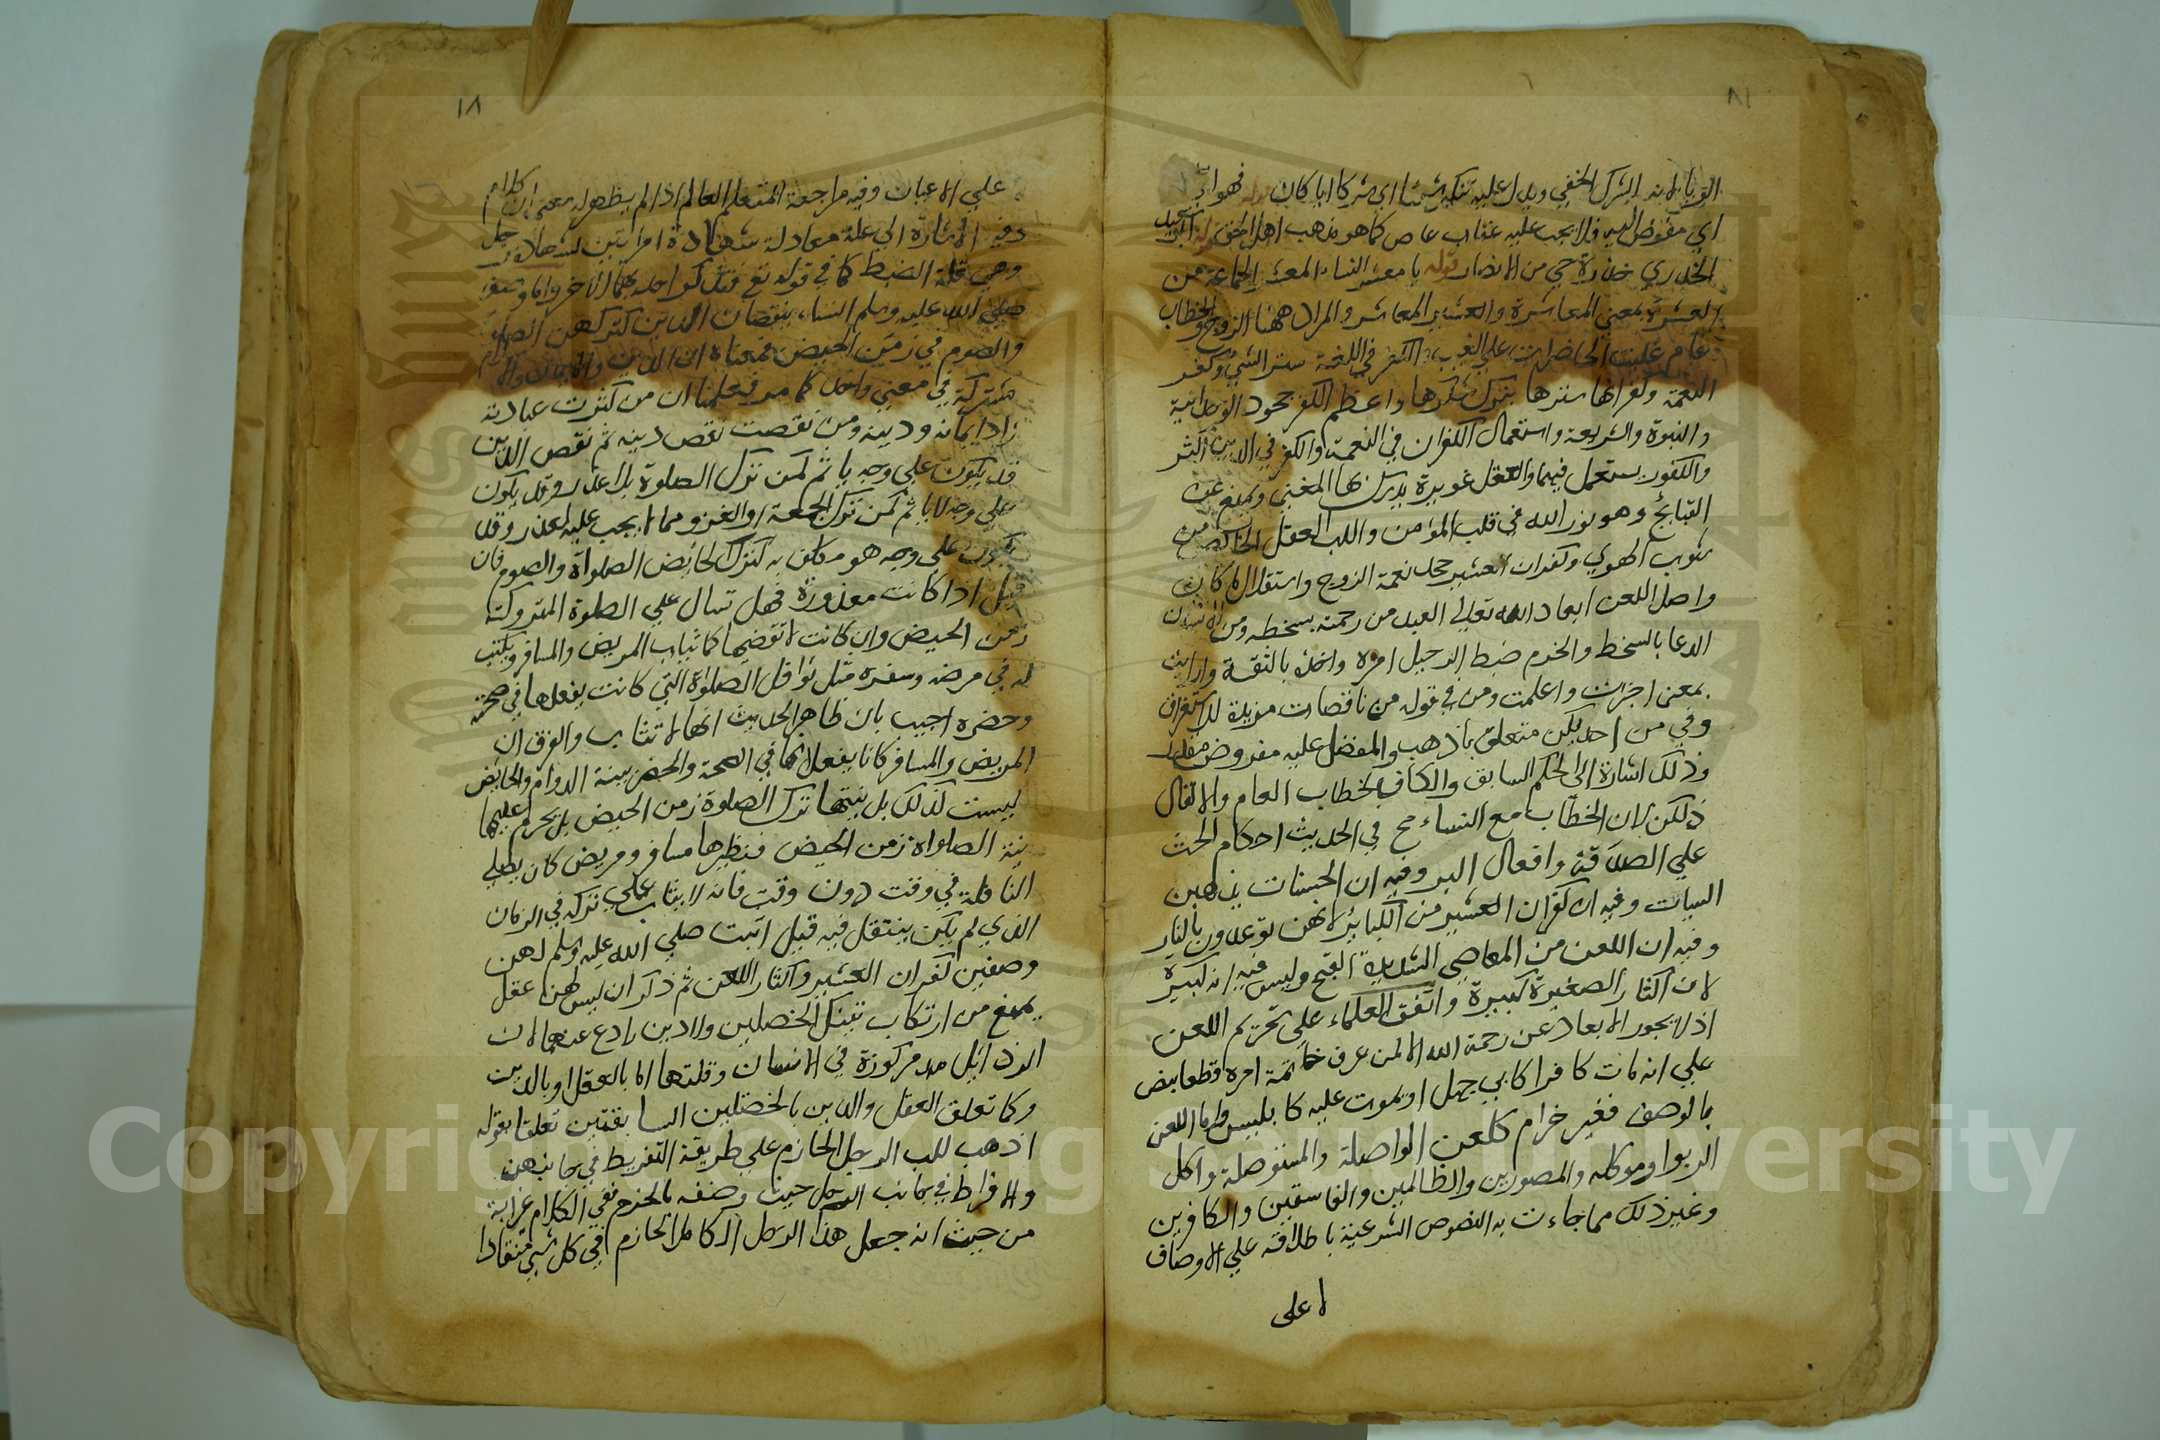 ١٨
الريا لانه الشرك الخفي ويدل عليه تنكير شيئا اي شركا ايا كان قوله فهو
اي مفوض اليه فلا يجب عليه عقاب عاص كما هو مذهب اهل الحق
الخدري خدرة حي من الانصار قوله يا معشر النساء المعشر الجماعة من
العشرة بمعني المعاشرة والعشير المعاشر والمراد ههنا الزوج والخطاب
عام غلبت الحاضرات علي الغيب الكفر في اللغة ستر الشي وكفر
النعمة وكفرانها سترها بترك شكرها واعظم الكفر جحود الوحدانية
والنبوة والشريعة واستعمال الكفران في النعمة والكفر في الدين اكثر
والكفور يستعمل فيهما والعقل غريزة يدرك بها المعني ويمنع عن
القبائح وهو نور الله في قلب المؤمن واللب العقل الخالص من
شوب الهوي وكفران العشير جحد نعمة الزوج واستقلال ما كان
واصل اللعن ابعاد الله تعالي العبد من رحمته بسخطه ومن الانسان
الدعا بالسخط والحزم ضبط الرجل امره واخذه بالثقة وارايت
بمعني اخبرت واعلمت ومن في قوله من ناقصات مزيدة للاستغراق
وفي من احديكن متعلق باذهب والمفضل عليه مفروض مقدر
وذلك اشارة الي الحكم السابق والكاف لخطاب العام والا لقال
ذلكن لان الخطاب مع النساء ح في الحديث احكام الحث
علي الصدقة وافعال البر وفيه ان الحسنات يذهبن
السيات وفيه ان كفران العشير من الكبائر لانهن توعدون بالنار
وفيه ان اللعن من المعاصي الشديدة القبح وليس فيه انه كبيرة
لان اكثار الصغيرة كبيرة واتفق العلماء علي تحريم اللعن
اذ لا يجوز الابعاد عن رحمة الله الا لمن عرف خاتمة امره قطعا بنص
علي انه مات كافرا كابي جهل او يموت عليه كابليس واما اللعن
بالوصف فغير حرام كلعن الواصلة والمستوصلة واكل
الربوا وموكله والمصورين والظالمين والفاسقين والكافرين
وغير ذلك مما جاءت به النصوص الشرعية باطلاقه علي الاوصاف
لا علي
١٨
علي الاعيان وفيه مراجعة المتعلم العالم اذا لم يظهر له معني كلام
وفيه الاشارة الي علة معادلة شهادة امراتين بشهادة رجل
وهي قلة الضبط كما في قوله تع فتذكر احديهما الاخري واما وصفه
صلي الله عليه وسلم النساء بنقصان الدين لتركهن الصلوة
والصوم في زمن الحيض فمعناه ان الدين والايمان والاسلام
مشتركة في معني واحد كما مر فعلمنا ان من كثرت عبادته
زاد ايمانه ودينه ومن نقصت نقص دينه ثم نقص الدين
قد يكون علي وجه ياثم كمن ترك الصلوة بلا عذر وقد يكون
علي وجه لا ياثم كمن ترك الجمعة او الغزو مما لا يجب عليه لعذر وقد
يكون علي وجه هو مكلف به كترك الحائض الصلواة والصوم فان
قيل اذا كانت معذورة فهل تثاب علي الصلوة المتروكة
زمن الحيض وان كانت لا تقضيها كما يثاب المريض والمسافر ويكتب
له في مرضه وسفره مثل نوافل الصلواة التي كانت يفعلها في صحته
وحضره اجيب بان ظاهر الحديث انها لا تثاب والفرق ان
المريض والمسافر كانا يفعلانها في الصحة والحضر بنية الدوام والحائض
ليست كذلك بل نيتها ترك الصلوة زمن الحيض بل يحرم عليها
نية الصلواة زمن الحيض فنظيرها مسافر ومريض كان يصلي
النافلة في وقت دون وقت فانه لا يثاب علي تركه في الزمان
الذي لم يكن يتنفل فيه قيل اثبت صلي الله عليه وسلم لهن
وصفين كفران العشير واكثار اللعن ثم ذكر ان ليس لهن عقل
يمنع من ارتكاب تينك الخصلتين ولا دين رادع عنهما لان
الرذائل مركوزة في الانسان وقلتها اما بالعقل او بالدين
وكما تعلق العقل والدين بالخصلتين السابقتين تعلقا بقوله
اذهب للب الرجل الحازم علي طريقة التفريط في جانبهن
والافراط في جانب الرجل حيث وصفه بالحزم ففي الكلام غرابة
من حيث انه جعل هذا الرجل الكامل الحازم في كل شي منقادا